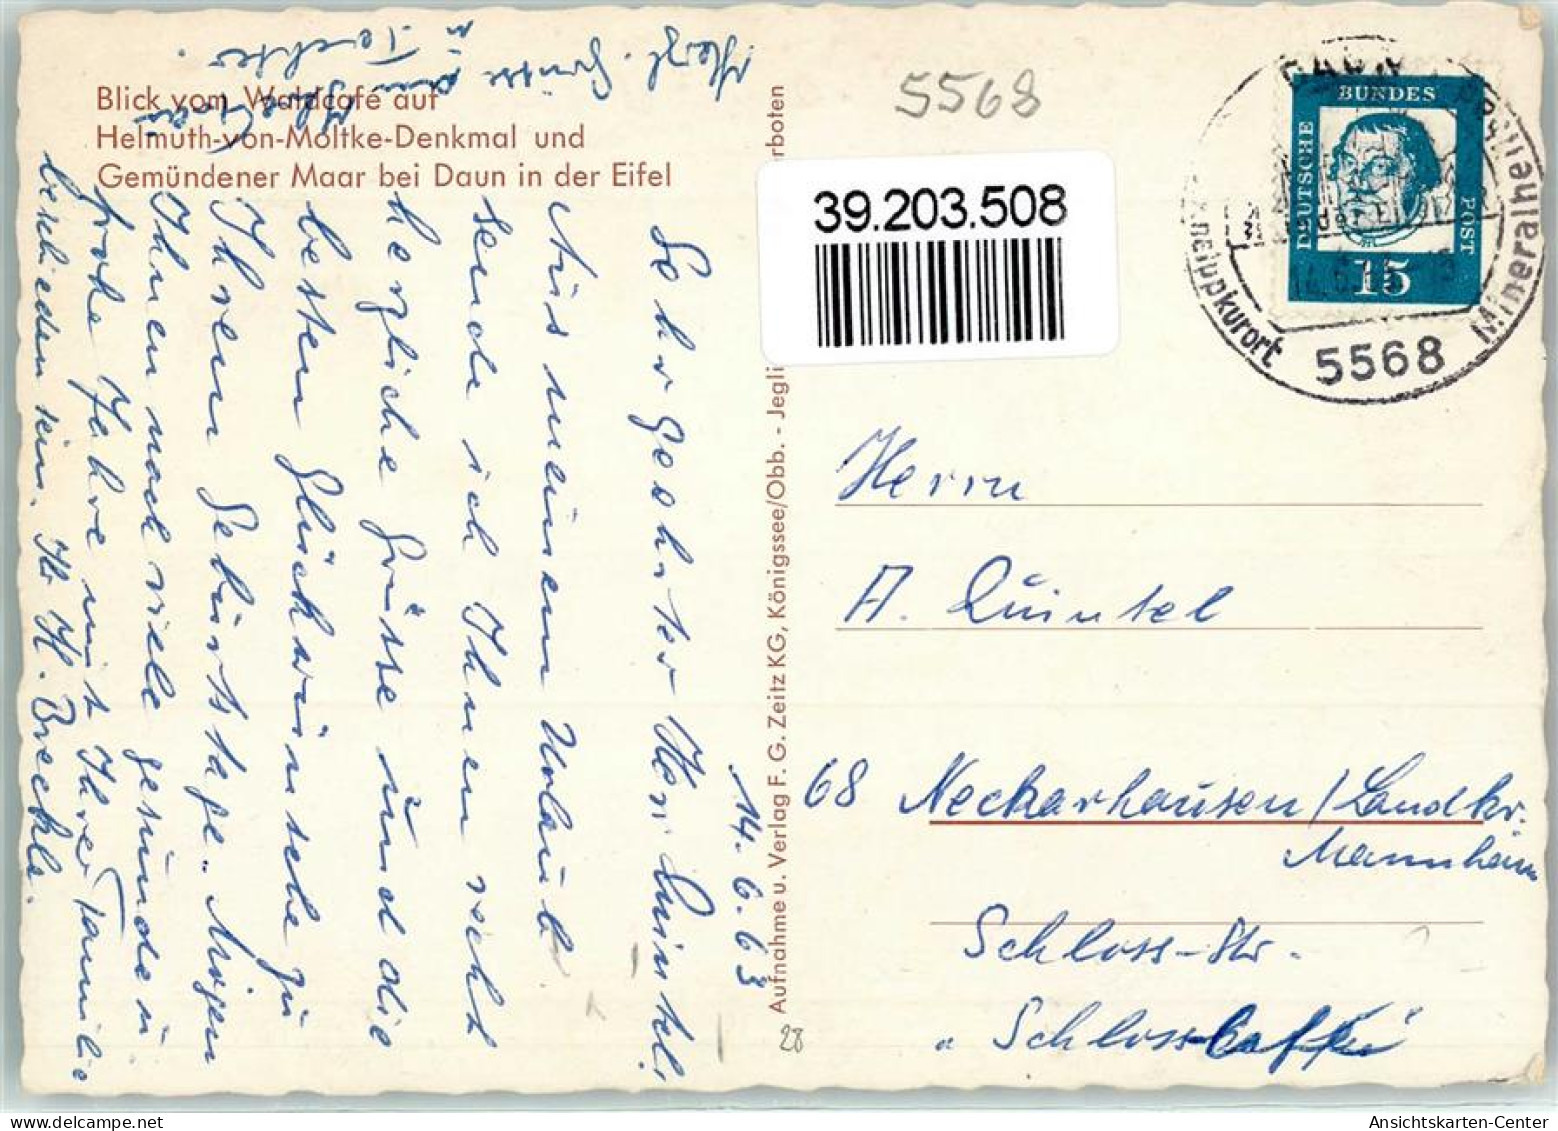 Blick vom Waldcafé auf
Helmuth-von-Moltke-Denkmal und
Gemündener Maar bei Daun in der Eifel
14.6.63
Sehr geehrter Herr Quintel!
Aus meinem Urlaub
sende ich Ihnen recht
herzliche Grüsse und die
besten Glückwünsche zu
Ihrem Geburtstage. Mögen
Ihnen noch viele gesunde u.
frohe Jahre mit Ihrer Familie
beschieden sein. Ihr H. Breckle.
Herzl. Grüsse
u. Tochter.
Aufnahme u. Verlag F. G. Zeitz KG, Königssee/Obb. - Jegli
rboten
28
5568
39.203.508
DEUTSCHE
BUNDES
POST
15
DAUN
Kneippkurort
5568
Mineralheilquellen
Herrn
A. Quintel
68 Neckarhausen/Landkr.
Mannheim
Schloss-Str.
"Schlosscaffee"
Ansichtskarten-Center